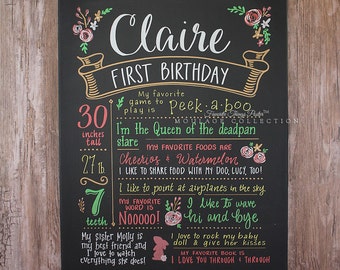 Claire
FIRST BIRTHDAY
My favorite
game to
play is
peek·a·boo
30
inches
tall
I'm the Queen of the deadpan
stare
MY FAVORITE FOODS ARE
Cheerios & Watermelon
I LIKE TO SHARE FOOD WITH MY DOG, LUCY, TOO!
27 lb
I like to point at airplanes in the sky
7
teeth
MY FAVORITE
WORD IS
NOOOOO!
I like to wave
hi and bye
My sister Molly is
my best friend and
I love to watch
everything she does!
I love to rock my baby
doll & give her kisses
MY FAVORITE BOOK IS
I LOVE YOU THROUGH & THROUGH
COLLECTION